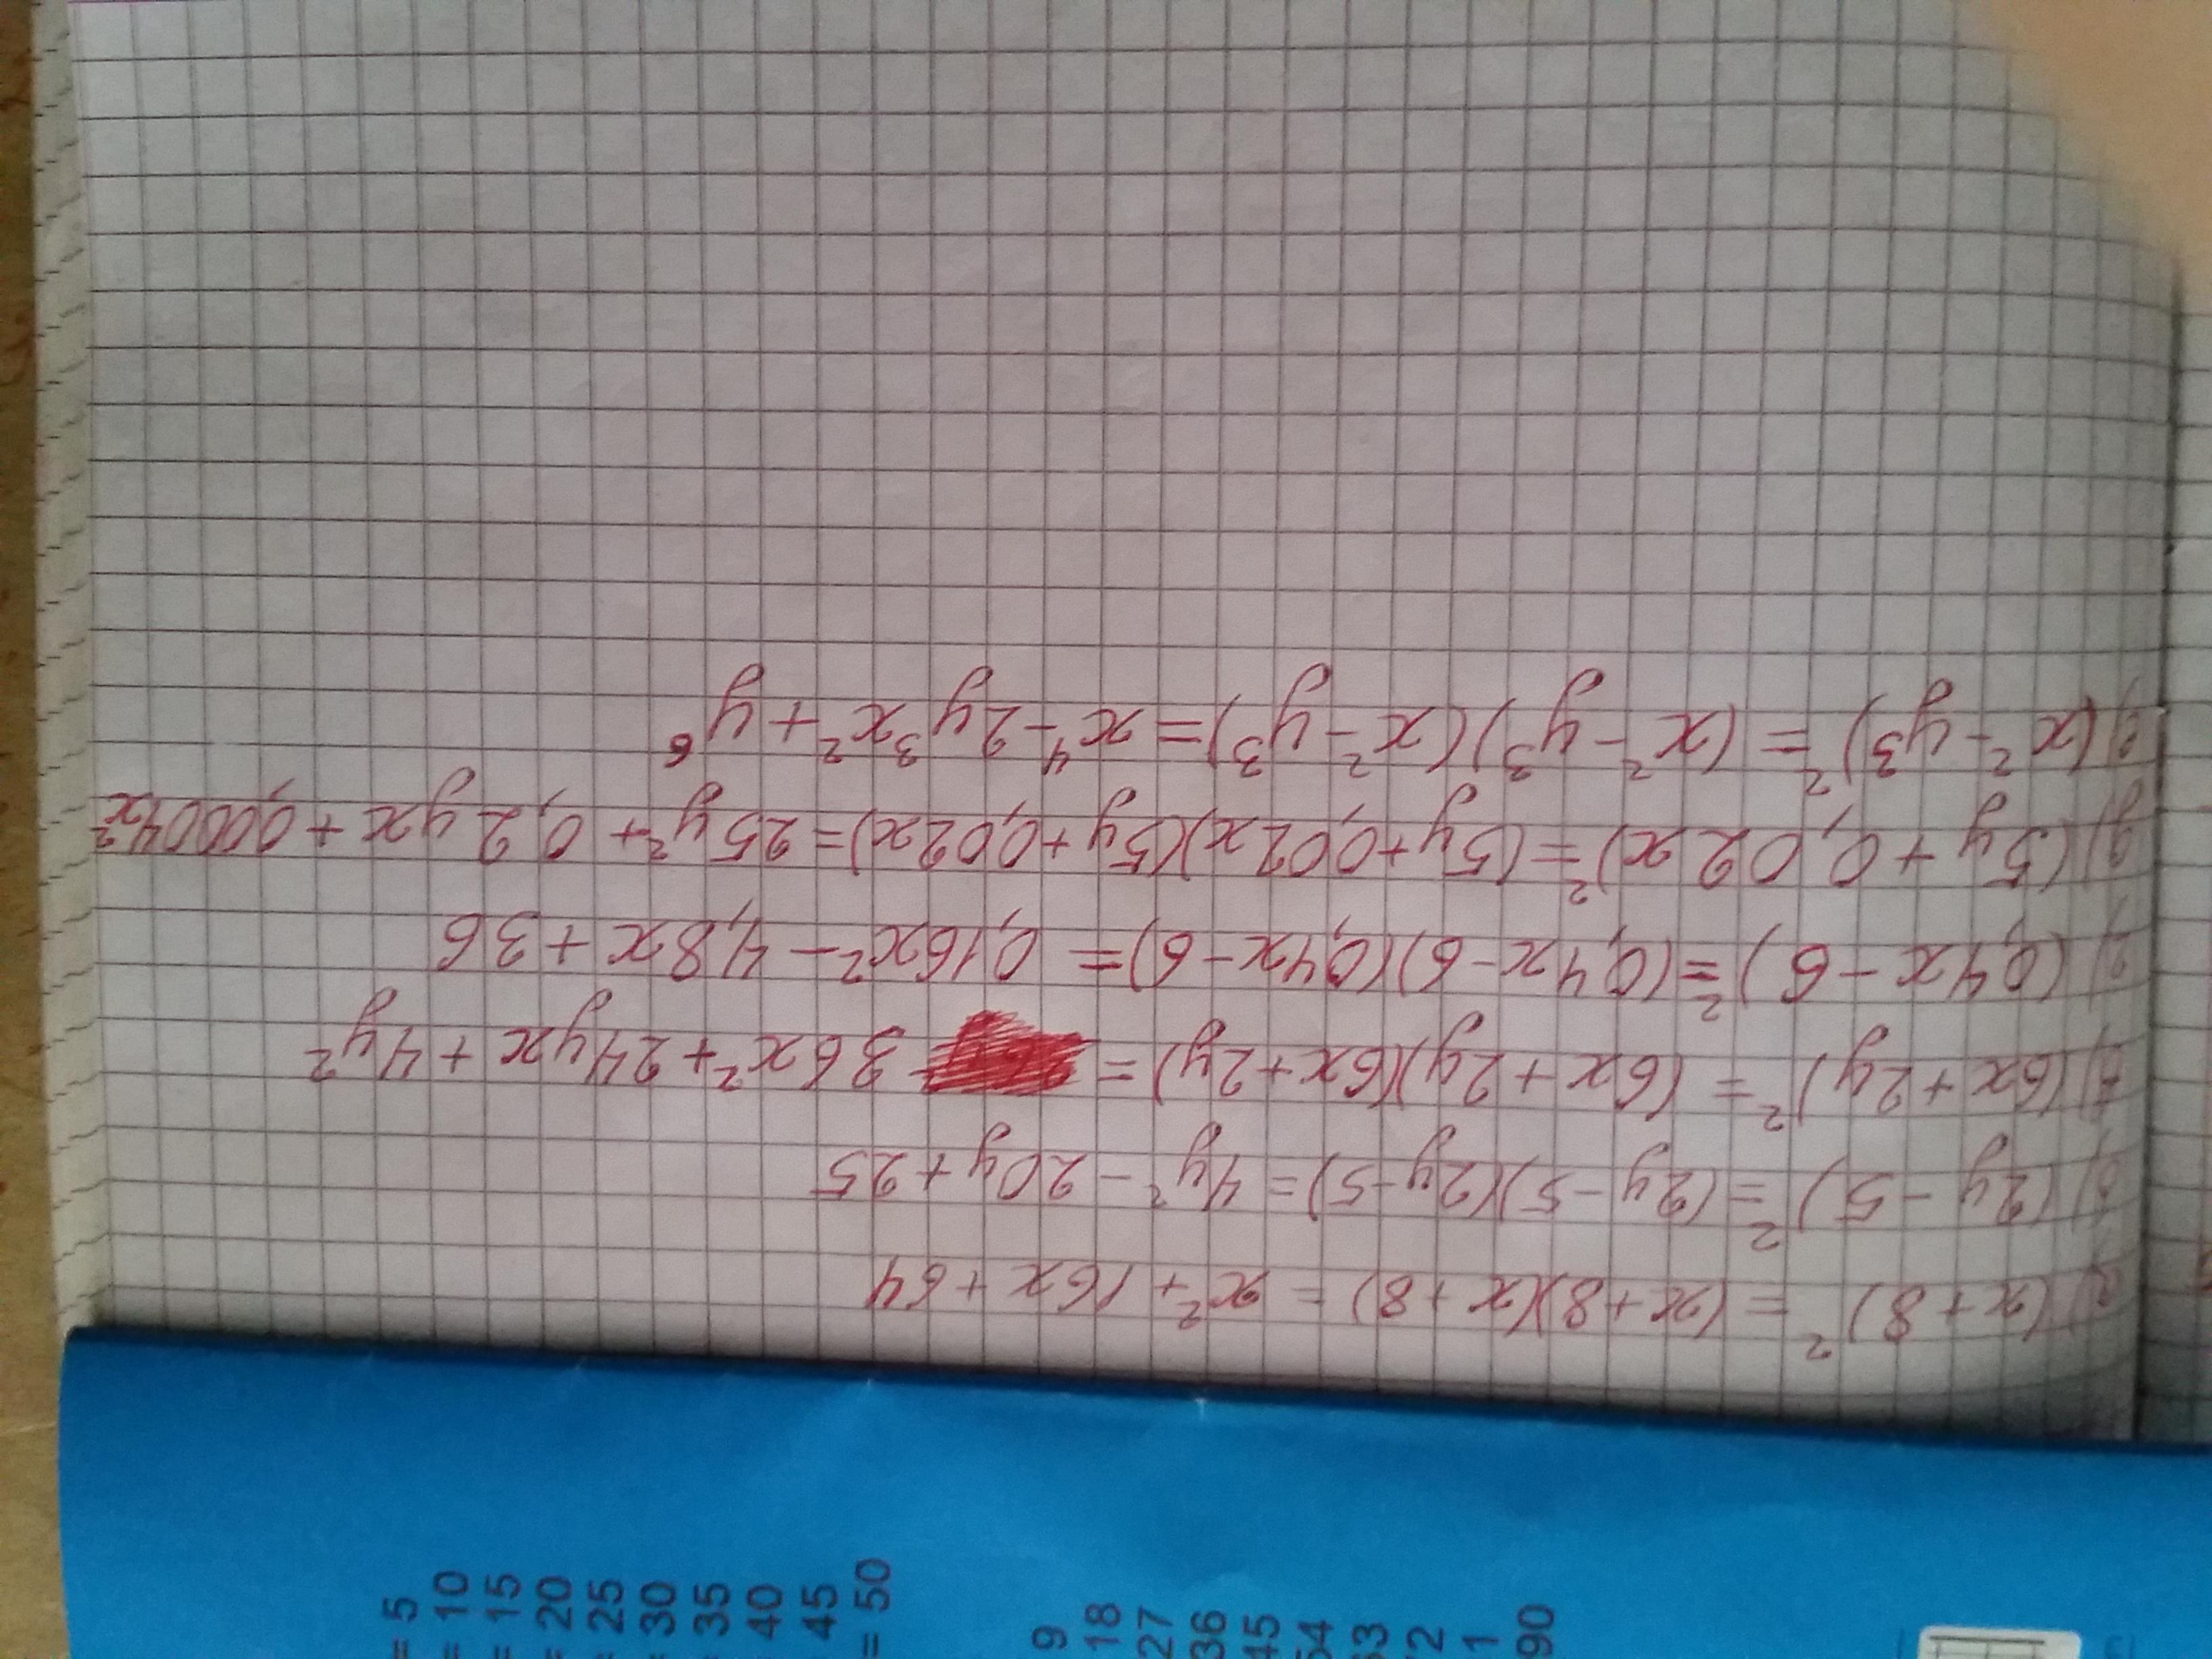 а) (x+8)² = (x+8)(x+8) = x²+16x+64
б) (2y-5)² = (2y-5)(2y-5) = 4y²-20y+25
в) (6x+2y)² = (6x+2y)(6x+2y) = 36x²+24yx+4y²
г) (0,4x-6)² = (0,4x-6)(0,4x-6) = 0,16x²-4,8x+36
д) (5y+0,02x)² = (5y+0,02x)(5y+0,02x) = 25y²+0,2yx+0,0004x²
е) (x²-y³)² = (x²-y³)(x²-y³) = x⁴-2y³x²+y⁶
= 5
= 10
= 15
= 20
= 25
= 30
= 35
40
45
= 50
9
18
27
36
45
54
63
90